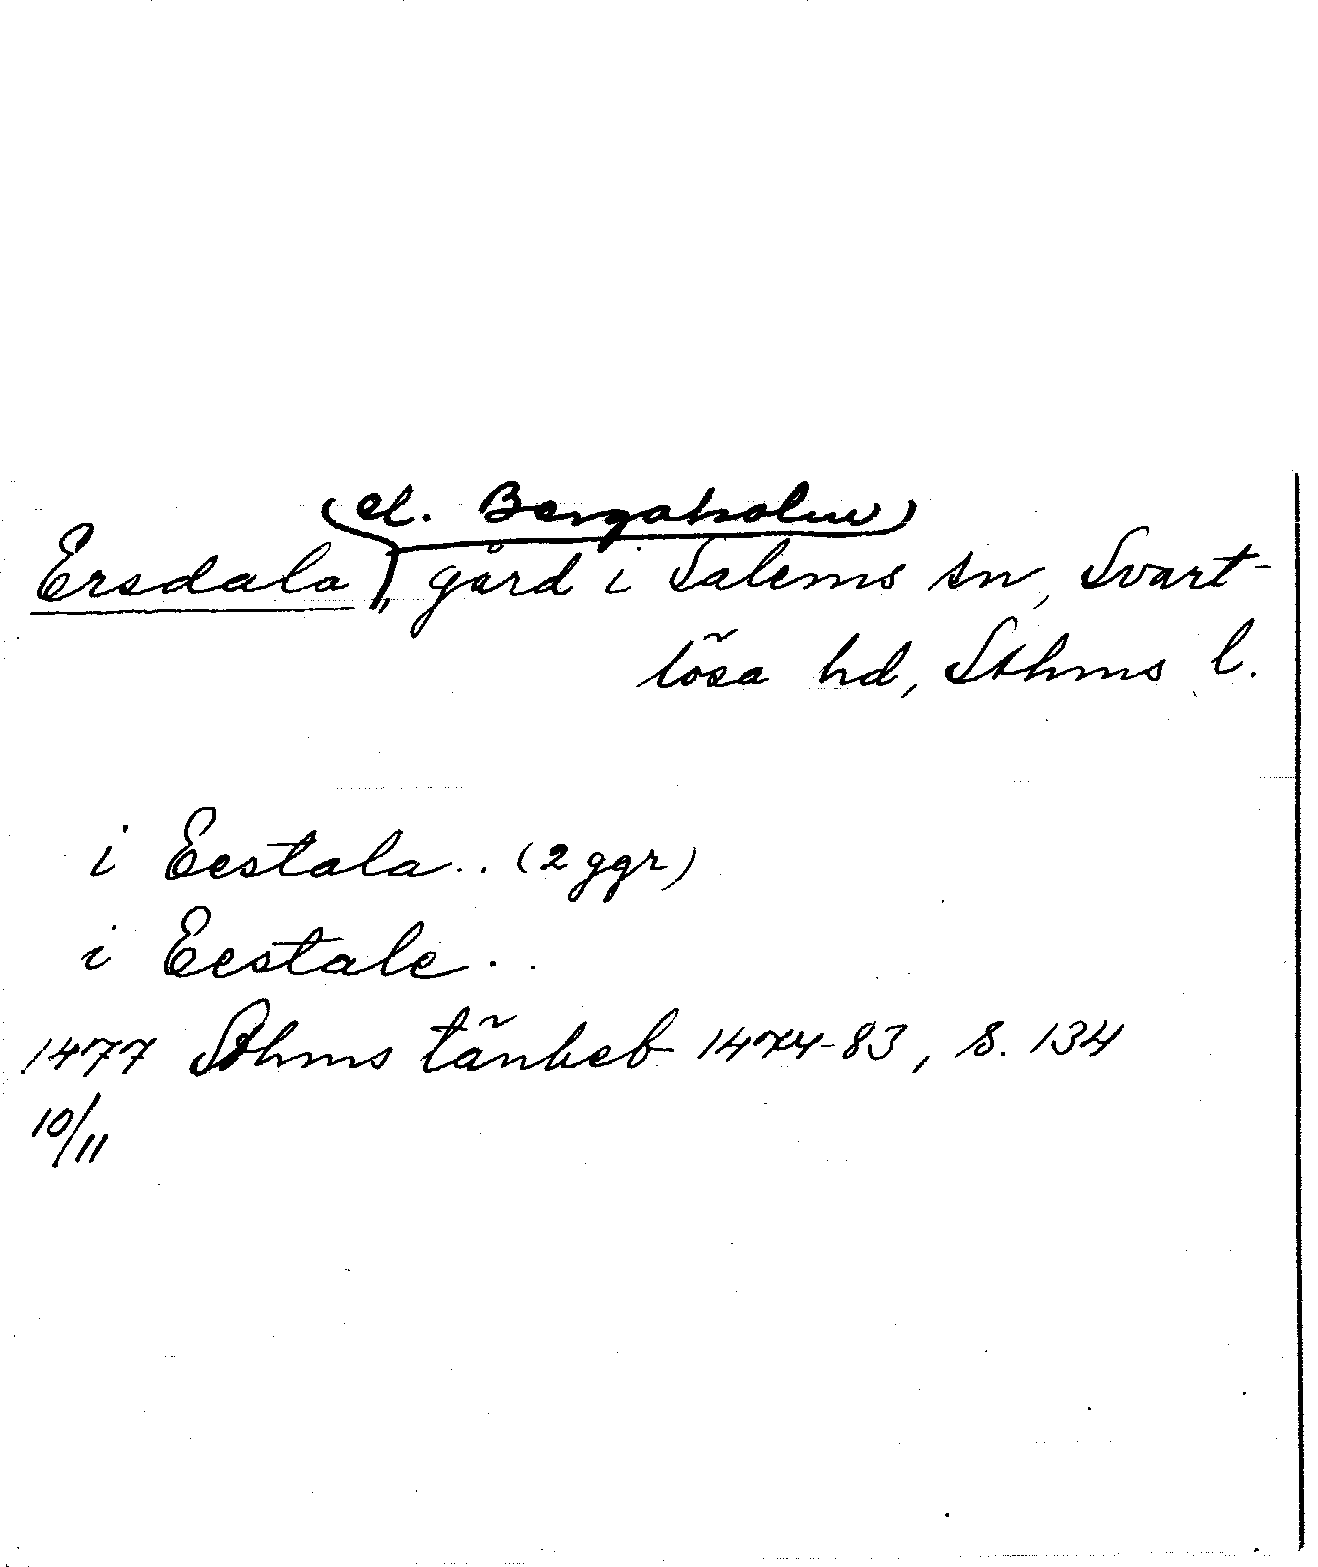 Ersdala (el. Bergaholm), gård i Salems sn, Svart-
lösa hd, Sthms l.
i Eestala .. (2 ggr)
i Eestale ..
1477 Sthms tänkeb 1474-83, s. 134
10/11